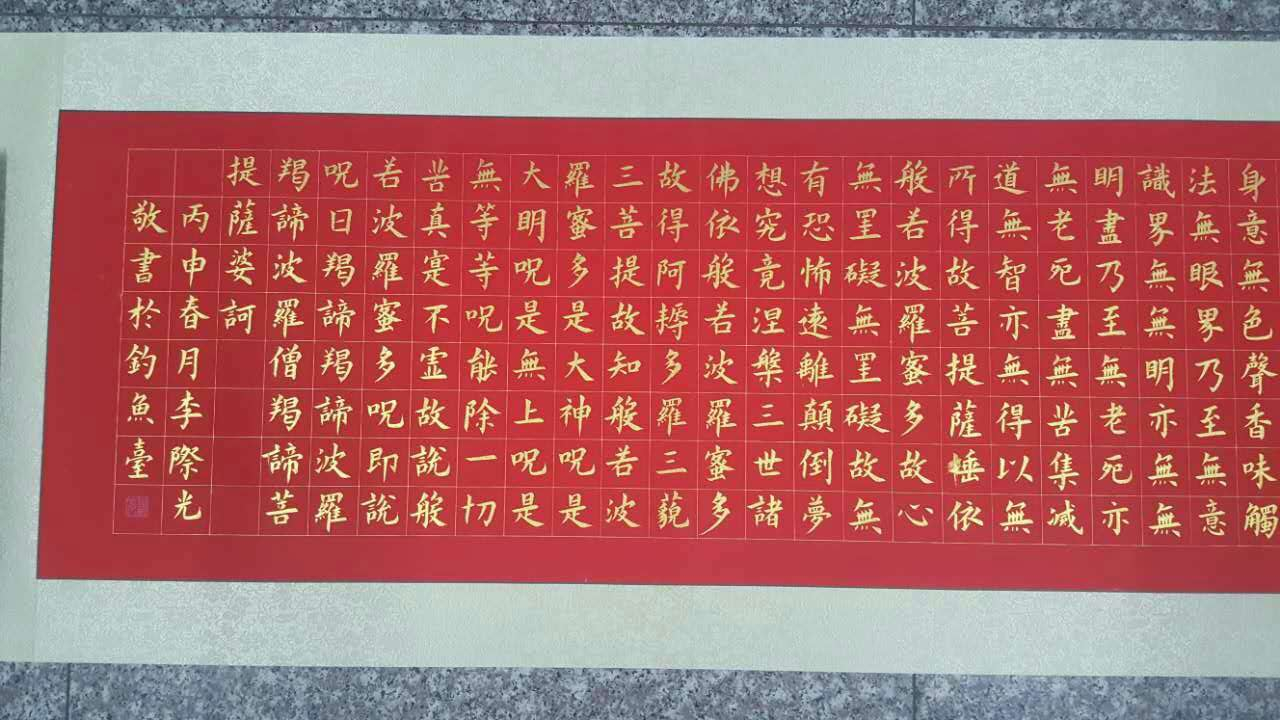 身意無色聲香味觸
法無眼界乃至無意
識界無無明亦無無
明盡乃至無老死亦
無老死盡無苦集滅
道無智亦無得以無
所得故菩提薩埵依
般若波羅蜜多故心
無罣礙無罣礙故無
有恐怖遠離顛倒夢
想究竟涅槃三世諸
佛依般若波羅蜜多
故得阿耨多羅三藐
三菩提故知般若波
羅蜜多是大神呪是
大明呪是無上呪是
無等等呪能除一切
苦真寔不虛故說般
若波羅蜜多呪即說
呪曰羯諦羯諦波羅
羯諦波羅僧羯諦菩
提薩婆訶
丙申春月李際光
敬書於釣魚臺